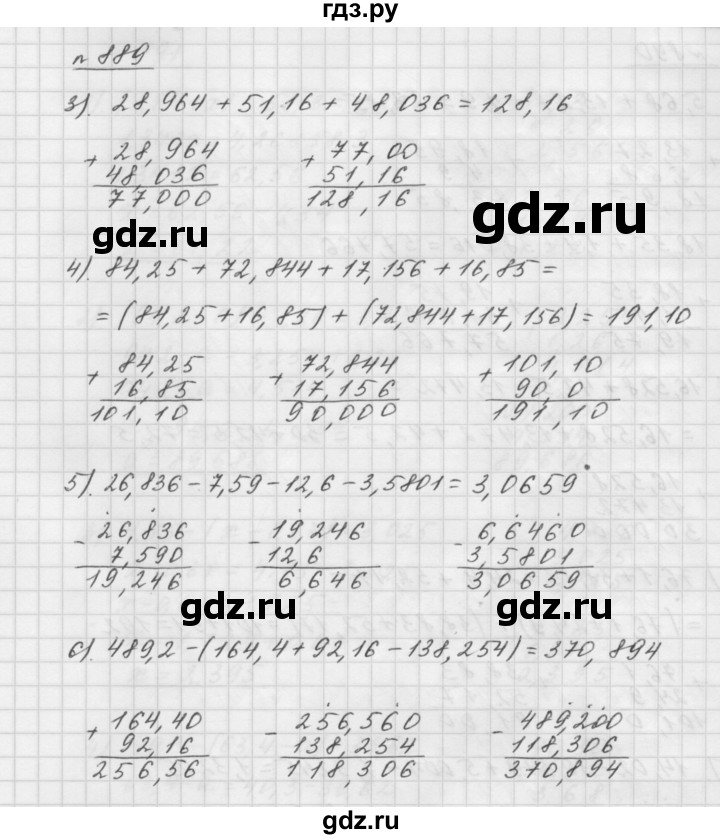 гдз.ру
№ 889
3). 28,964 + 51,16 + 48,036 = 128,16
+ 28,964
48,036
77,000
+ 77,00
51,16
128,16
gdz.ru
gdz.ru
4). 84,25 + 72,844 + 17,156 + 16,85 =
= (84,25 + 16,85) + (72,844 + 17,156) = 191,10
+ 84,25
16,85
101,10
+ 72,844
17,156
90,000
+ 101,10
90,0
191,10
5). 26,836 - 7,59 - 12,6 - 3,5801 = 3,0659
- 26,836
7,590
19,246
- 19,246
12,6
6,646
- 6,6460
3,5801
3,0659
gdz.ru
gdz.ru
6). 489,2 - (164,4 + 92,16 - 138,254) = 370,894
+ 164,40
92,16
256,56
- 256,560
138,254
118,306
- 489,200
118,306
370,894
gdz.ru
gdz.ru